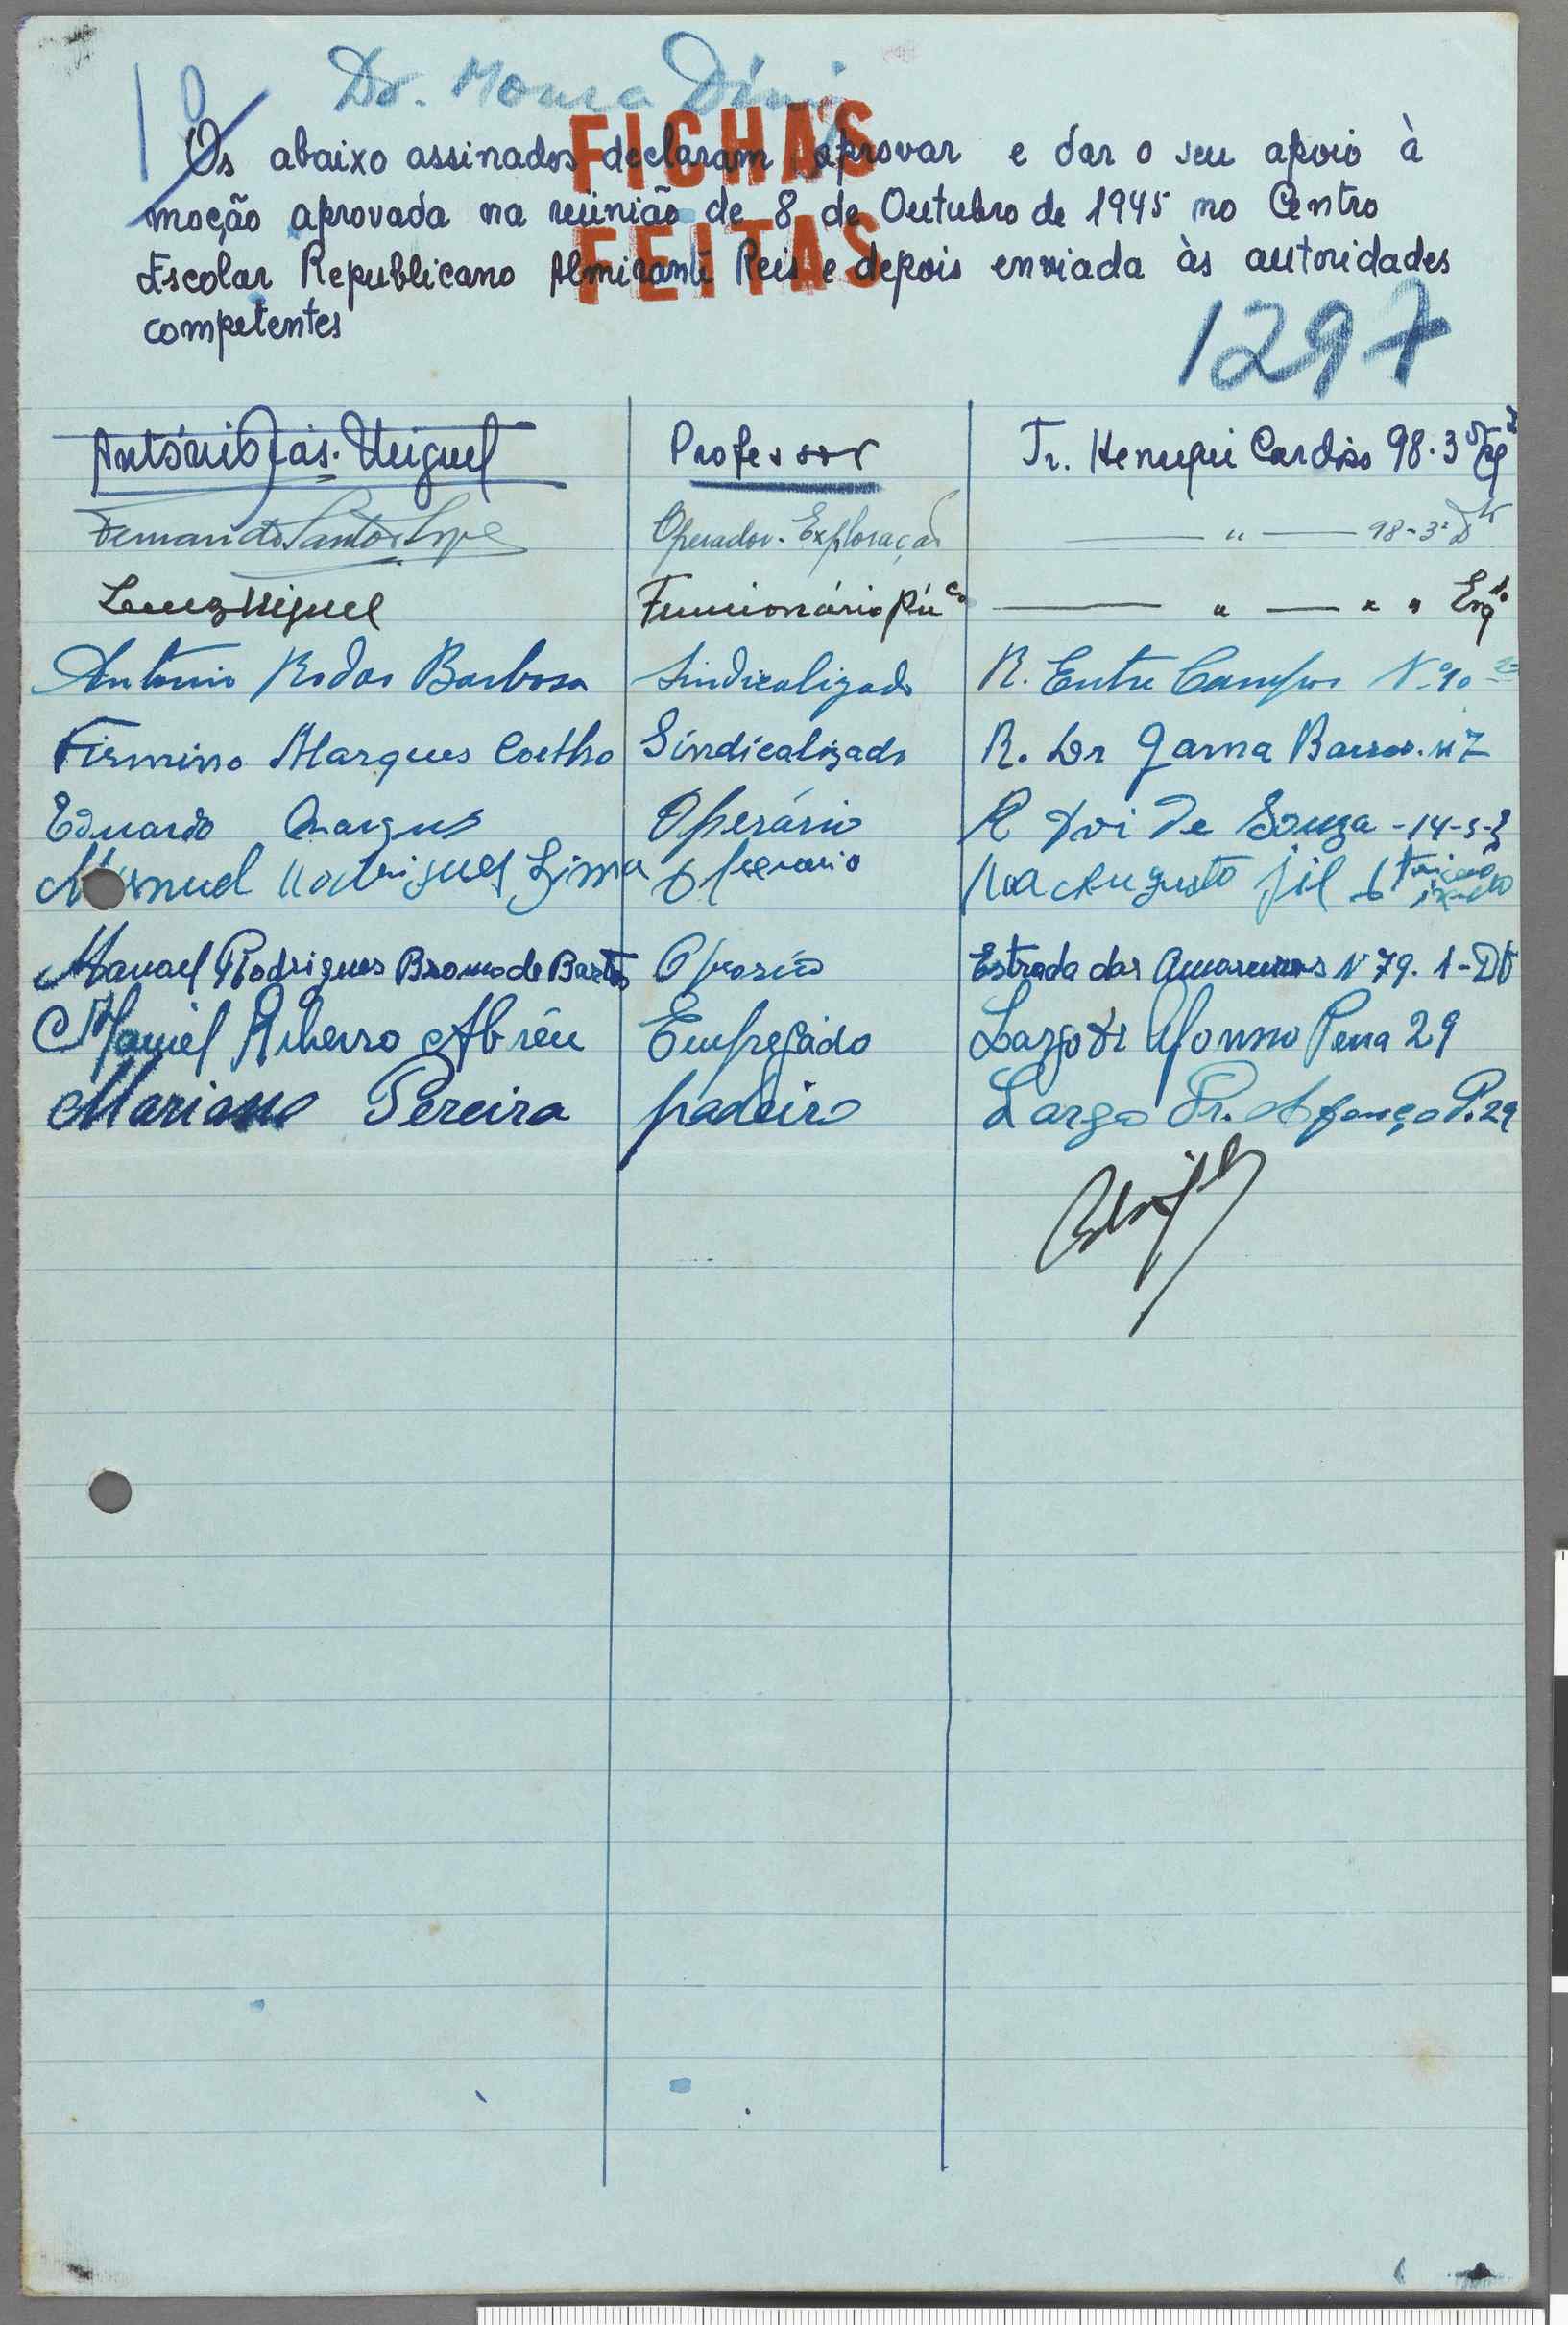 Dr. Moura
FICHAS
FEITAS
Os abaixo assinados declaram aprovar e dar o seu apoio à
moção aprovada na reünião de 8 de Outubro de 1945 no Centro
Escolar Republicano Almirante Reis e depois enviada às autoridades
competentes
1297
António Miguel Professor Tr. Henrique Cardoso 98.3º
Fernando Santos Lopes Operador. Exploração " 98-3º D
Luiz Miguel Funcionário Púco " " " Esqdo
António Rodas Barbosa Sindicalizado R. Entre Campos Nº
Firmino Marques Coelho Sindicalizado R. Dr Gama Barros. Nº 7
Eduardo Marques Operário R de Souza -14-
Manuel Rodrigues Lima Operario Rua Augusto Jil 6
Manael Rodrigues de Operário Estrada das N 79. 1-Dt
Manuel Ribeiro Abrêu Empregado Largo Dr Afonso Pena 29
Mariano Pereira padeiro Largo Dr. Afonço P. 29